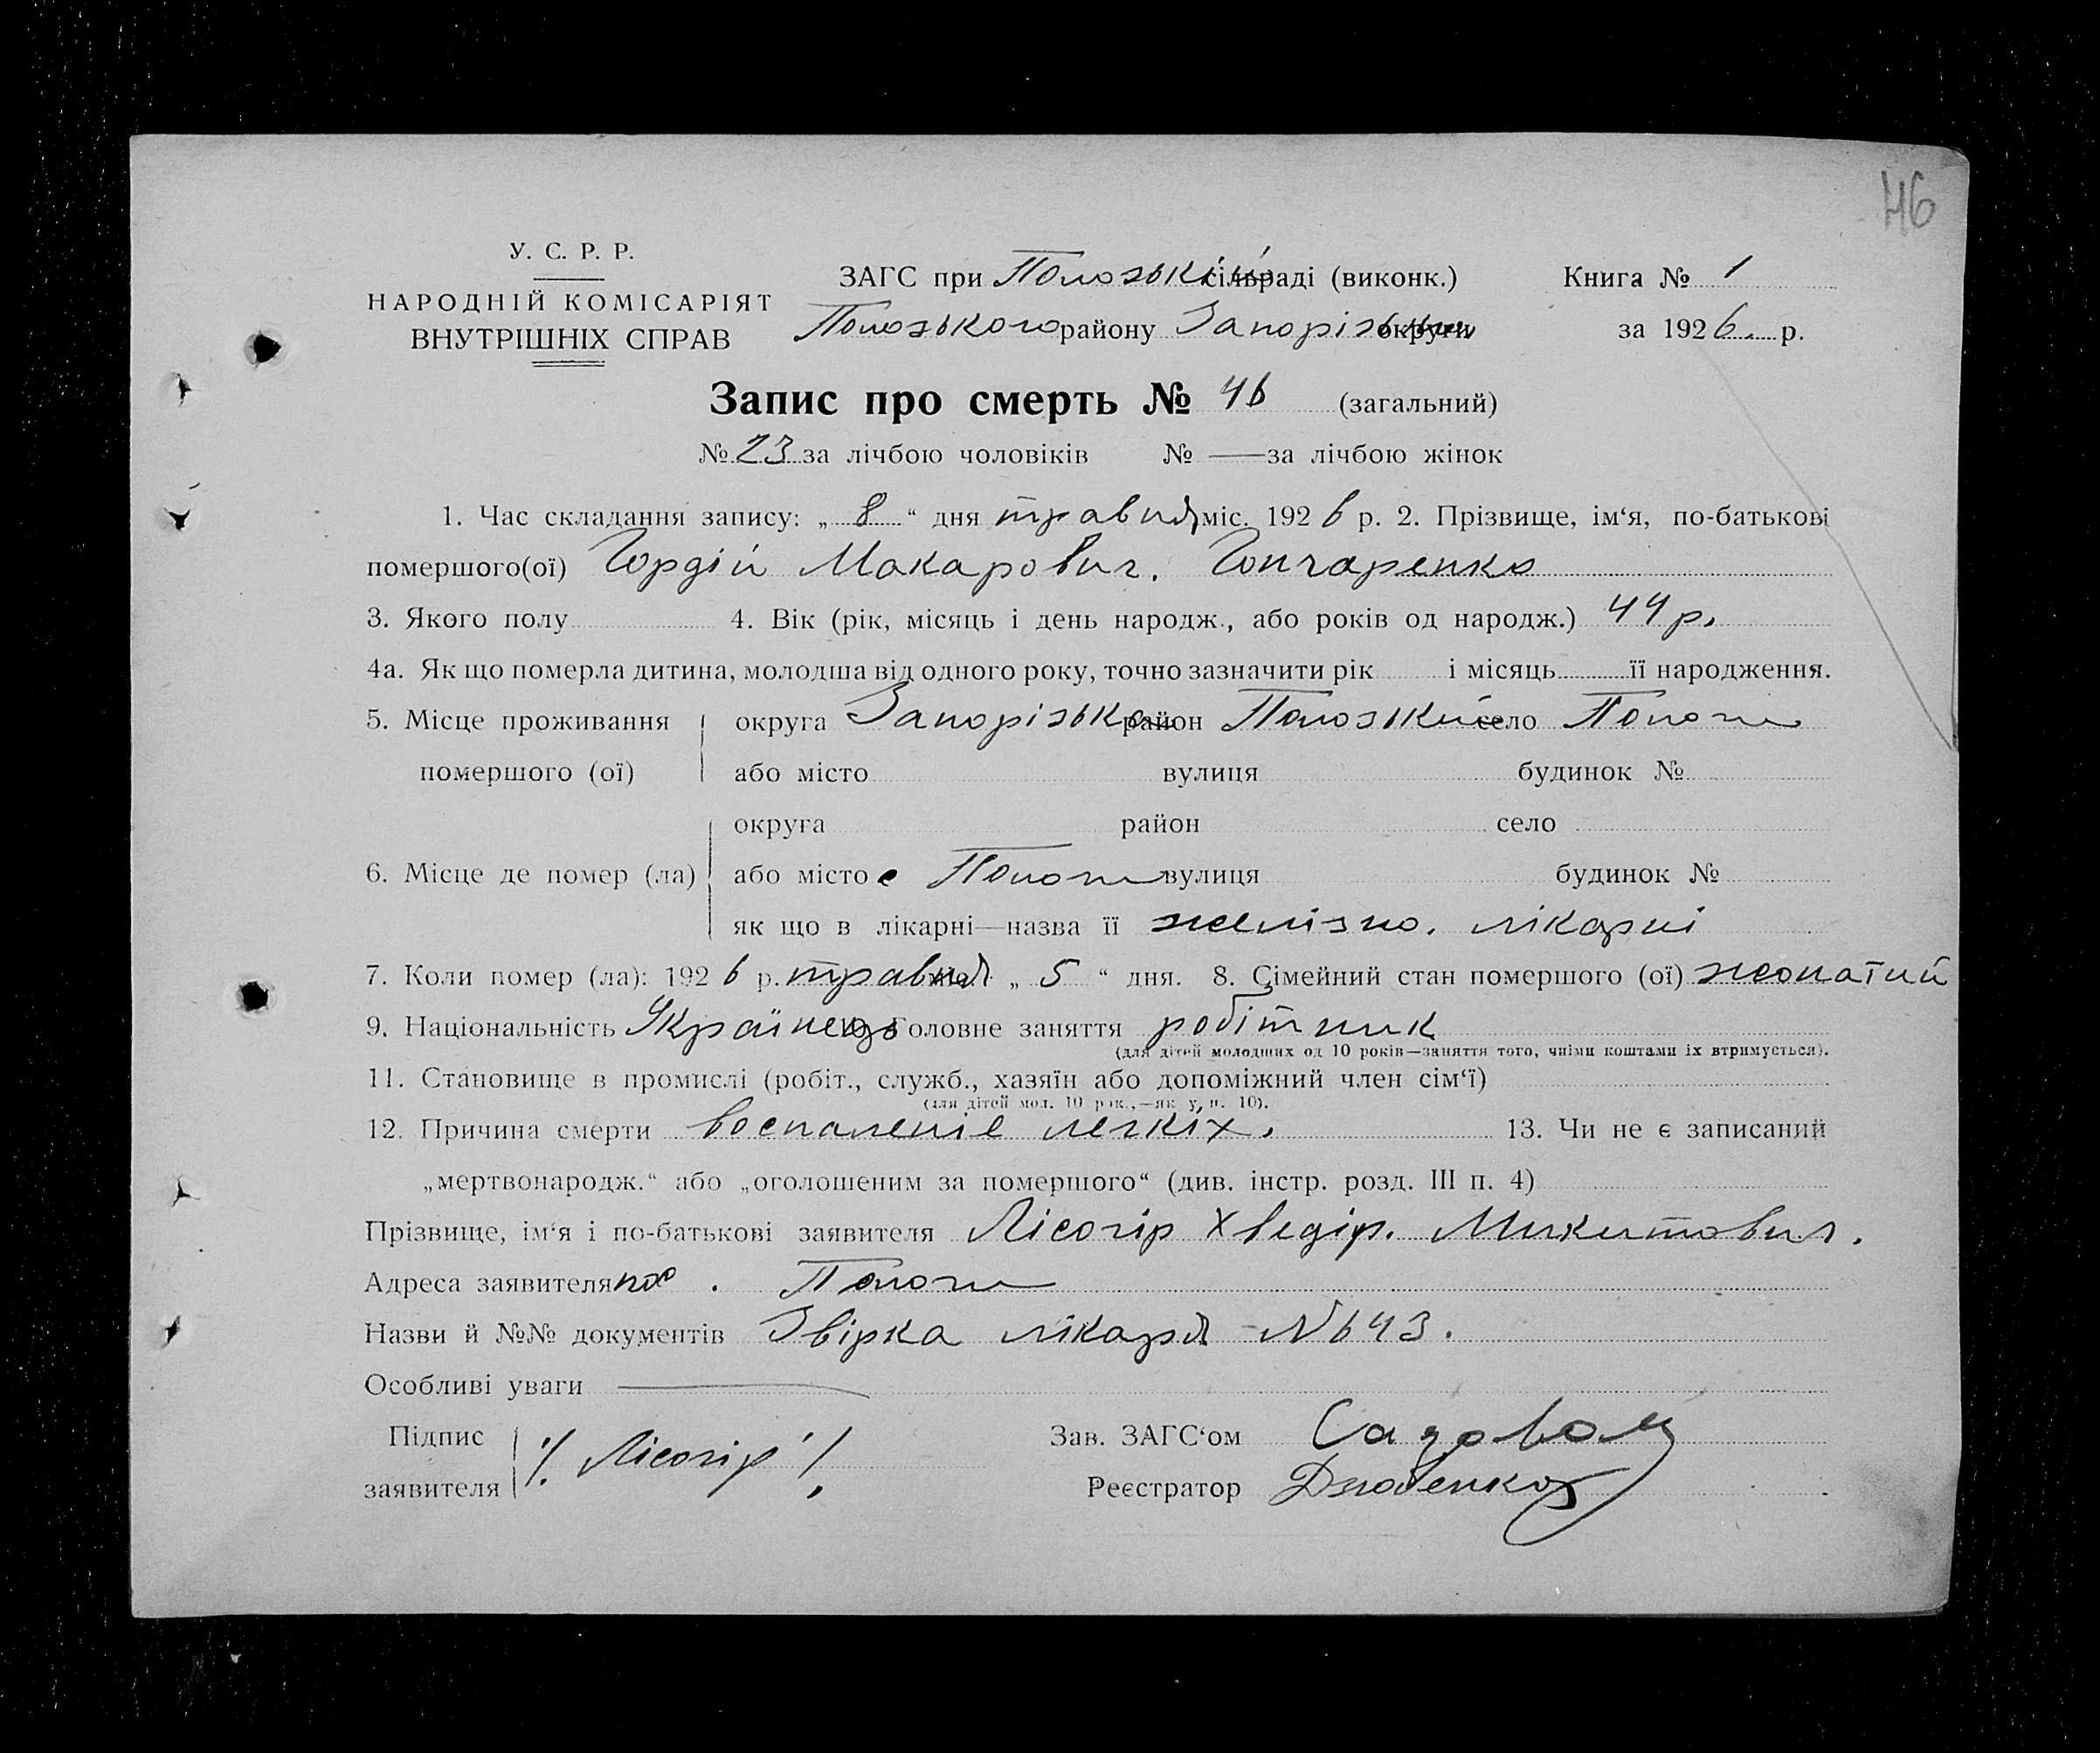 46
У. С. Р. Р.
НАРОДНІЙ КОМІСАРІЯТ
ВНУТРІШНІХ СПРАВ
ЗАГС при Пологській сільраді (виконк.)
Пологського району Запорізьк округи
Книга № 1
за 1926 р.
Запис про смерть № 46 (загальний)
№ 23 за лічбою чоловіків № — за лічбою жінок
1. Час складання запису: „ 8 “ дня травня міс. 1926 р. 2. Прізвище, ім‘я, по-батькові
помершого(ої) Гордій Макарович. Гончаренко
3. Якого полу 4. Вік (рік, місяць і день народж., або років од народж.) 44 р.
4а. Як що померла дитина, молодша від одного року, точно зазначити рік і місяць її народження.
5. Місце проживання округа Запорізька район Пологський село Пологи
помершого (ої) або місто вулиця будинок №
округа район село
6. Місце де помер (ла) або місто с Пологи вулиця будинок №
як що в лікарні—назва її желізно. лікарні
7. Коли помер (ла): 1926 р. травня „ 5 “ дня. 8. Сімейний стан помершого (ої) жонатий
9. Національність Українець 10. Головне заняття робітник
(для дітей молодших од 10 років—заняття того, чиїми коштами їх втримується).
11. Становище в промислі (робіт., служб., хазяїн або допоміжний член сім‘ї)
(для дітей мол. 10 рок.,—як у п. 10).
12. Причина смерти воспаленіе легкіх. 13. Чи не є записаний
„мертвонародж.“ або „оголошеним за помершого“ (див. інстр. розд. III п. 4)
Прізвище, ім‘я і по-батькові заявителя Лісогір Хведір. Микитович.
Адреса заявителя Пологи
Назви й №№ документів Звірка лікаря № 643.
Особливі уваги —
Підпис
заявителя /. Лісогір /.
Зав. ЗАГС‘ом
Реєстратор